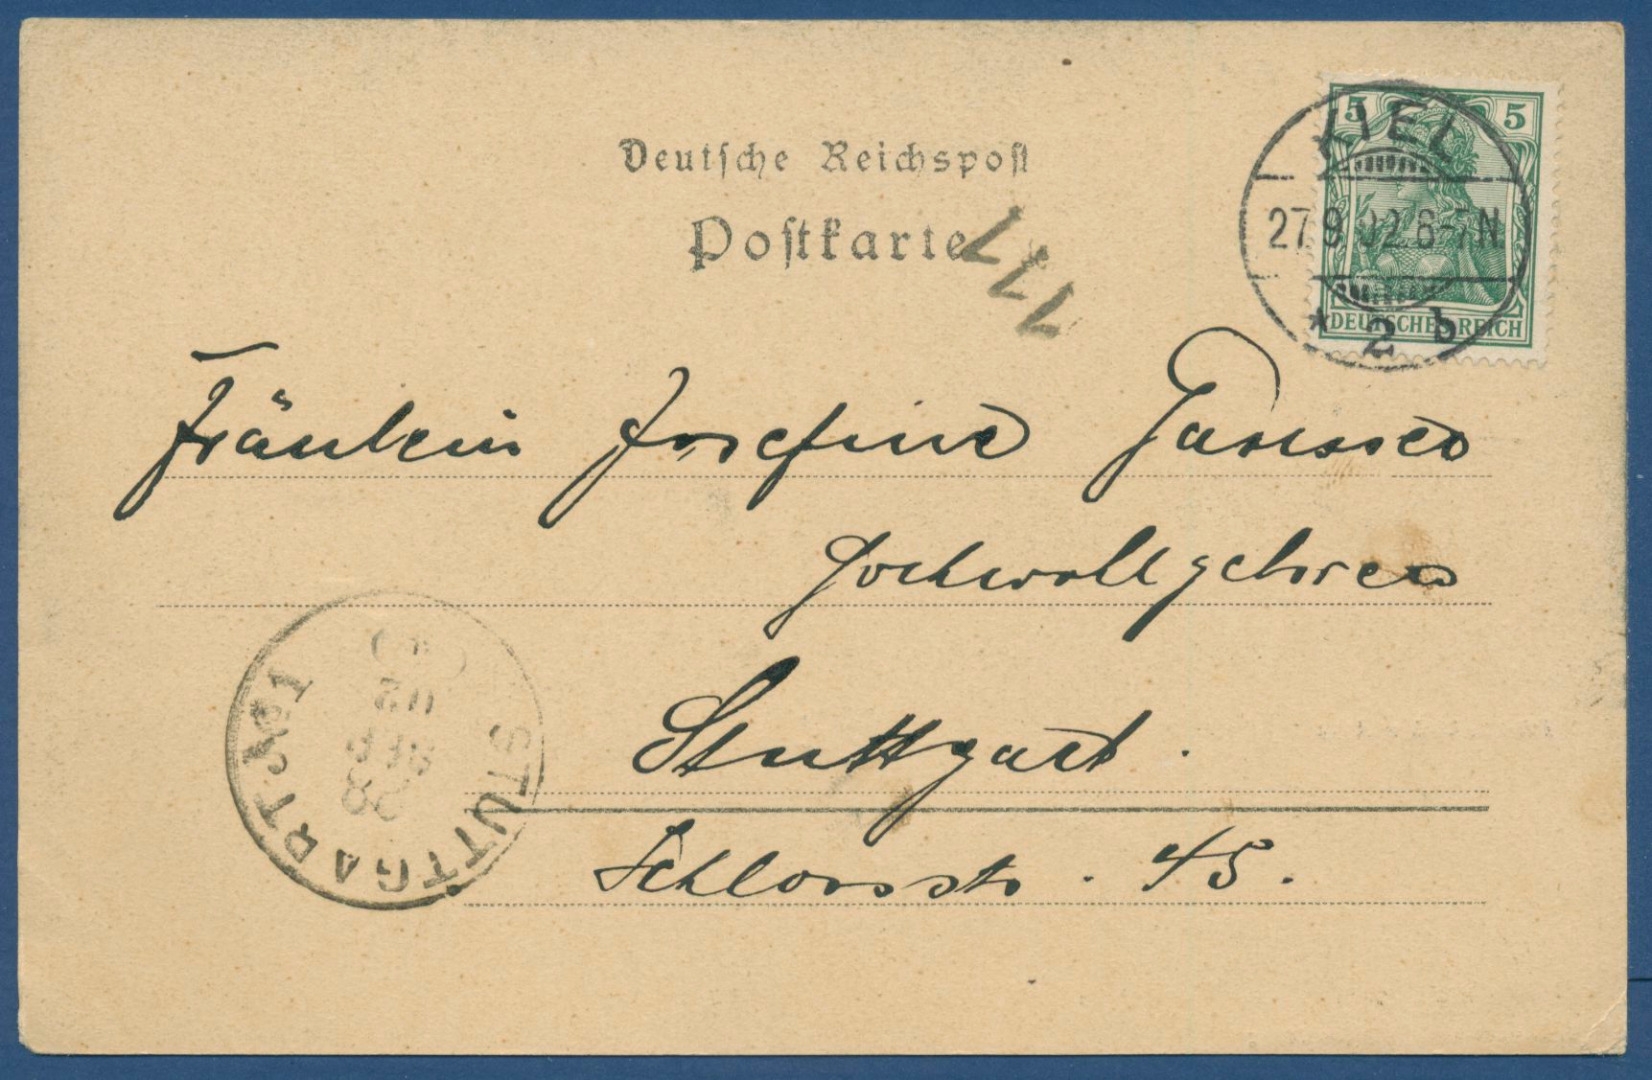 Deutsche Reichspost
Postkarte
5 5
DEUTSCHES REICH
KIEL
27.9.02.6-7N.
* 2 b
Fräulein Josefine
Hochwohlgeboren
Stuttgart.
Schlossstr. 45.
STUTTGART
28
SEP
02